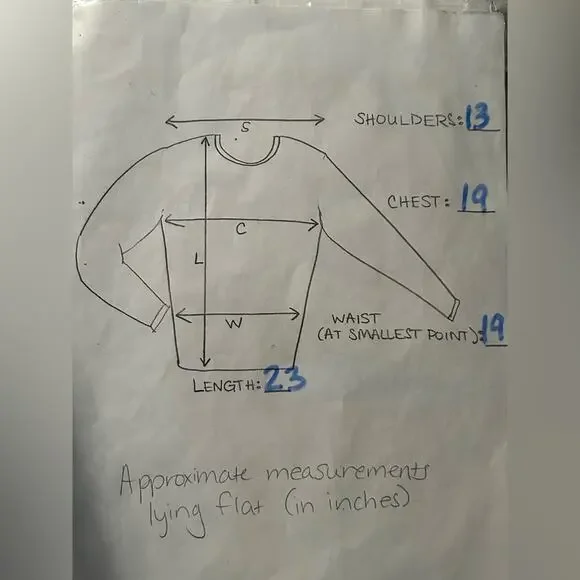 S
SHOULDERS: 13
CHEST: 19
C
L
W
WAIST
(AT SMALLEST POINT): 19
LENGTH: 23
Approximate measurements
lying flat (in inches)